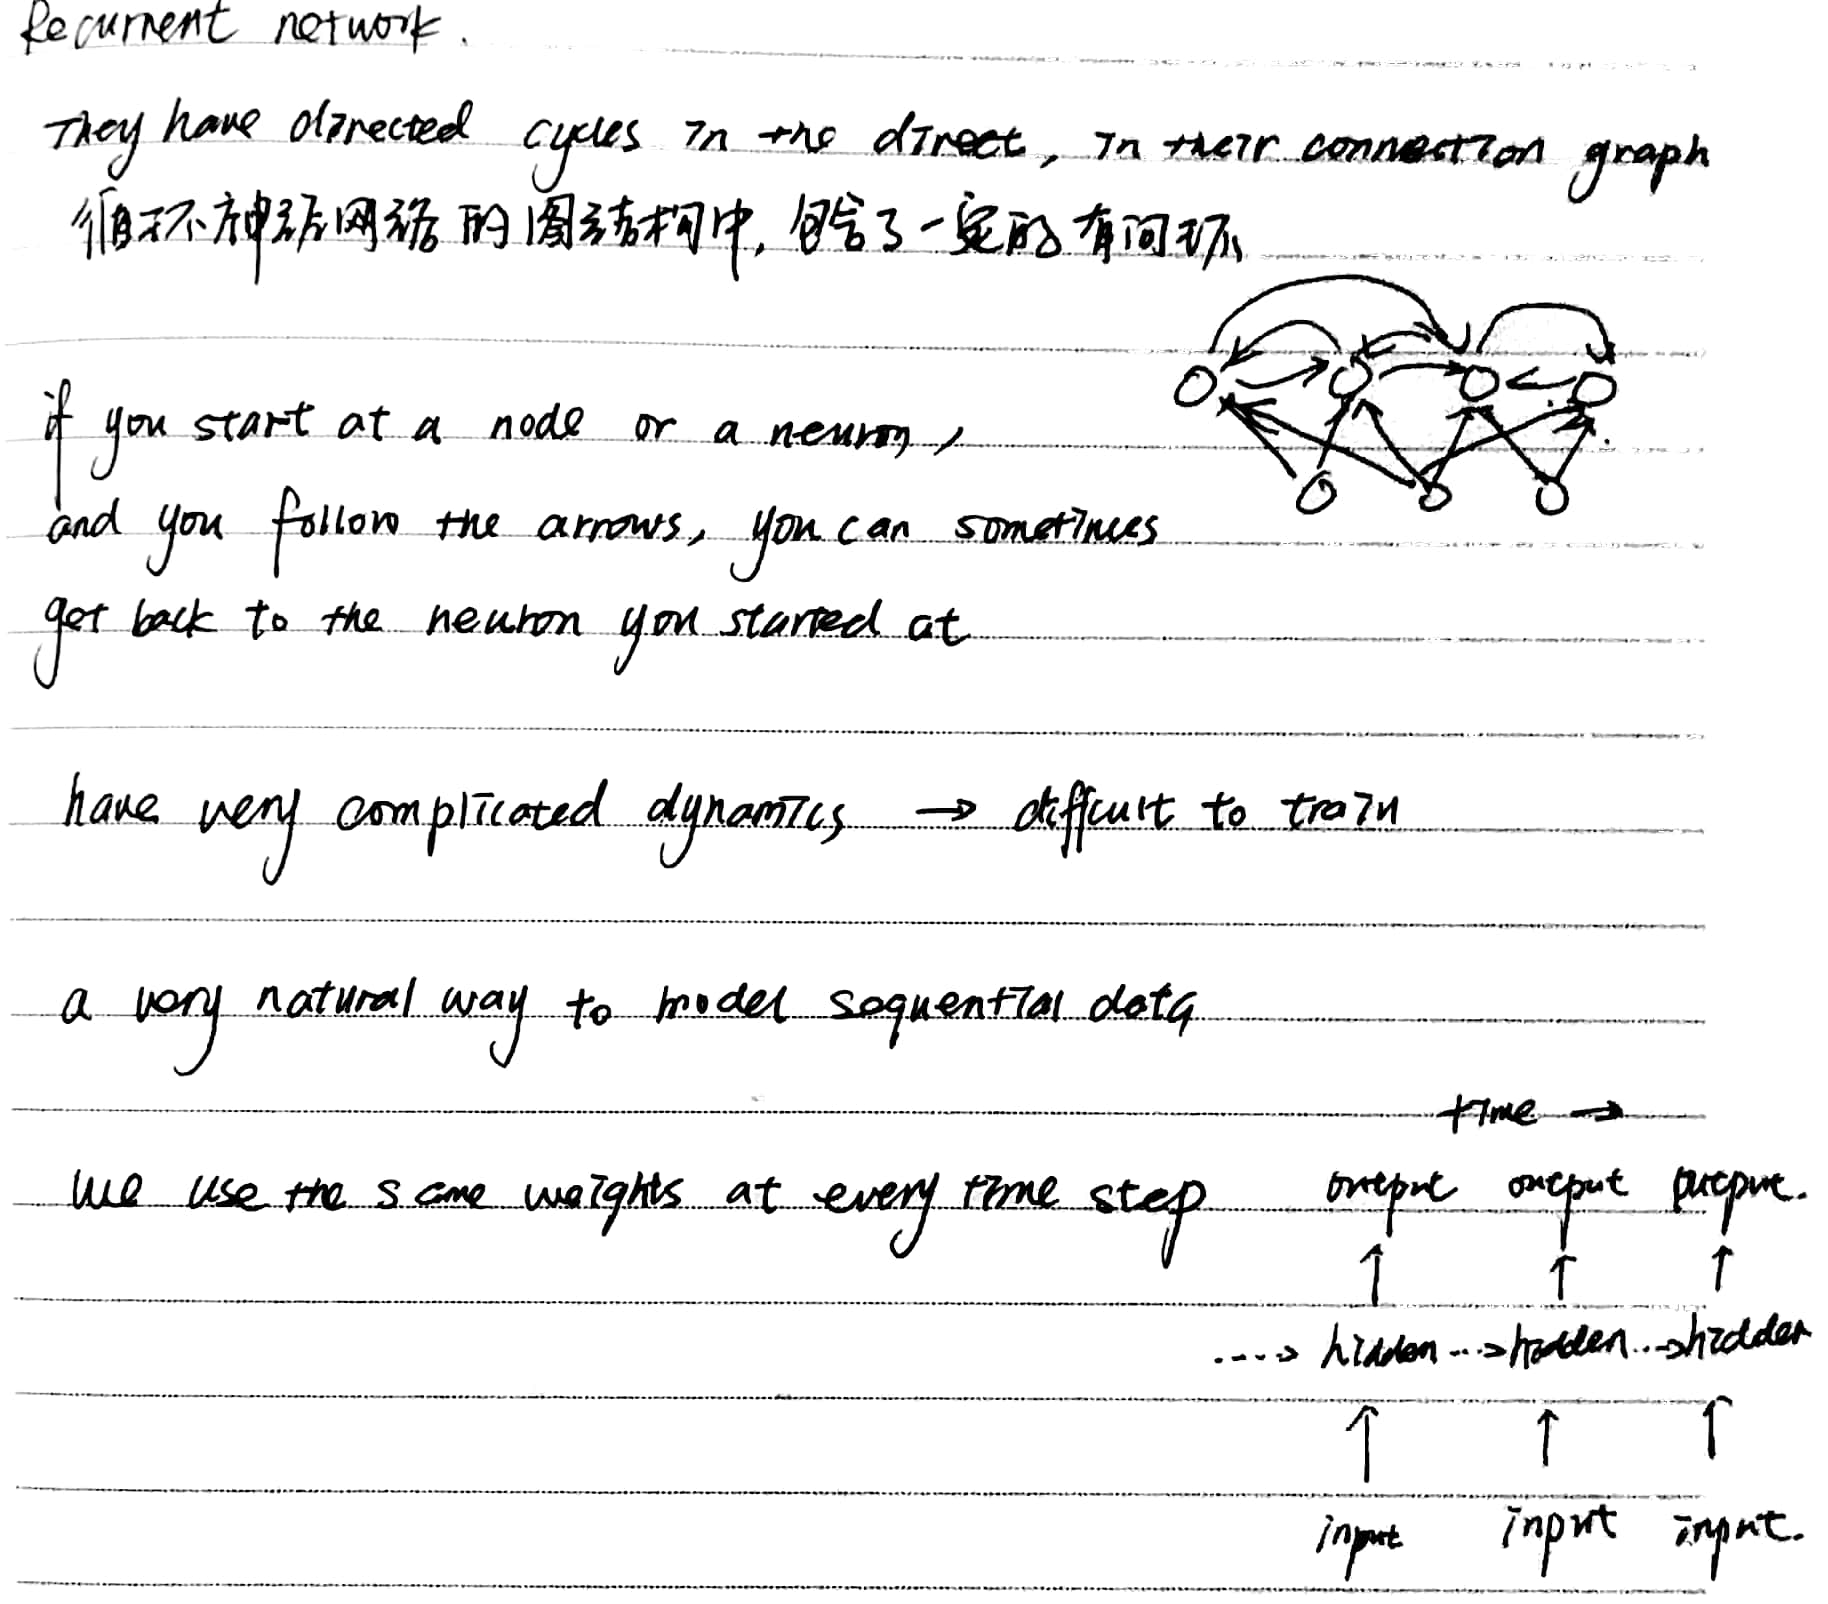 Recurrent network.
They have directed cycles in the direct, in their connection graph
循环神经网络的图结构中,包含了一定的有向环
if you start at a node or a neuron,
and you follow the arrows, you can sometimes
get back to the neuron you started at
have very complicated dynamics → difficult to train
a very natural way to model sequential data
time →
we use the same weights at every time step output output output.
hidden hidden hidden
input input input.